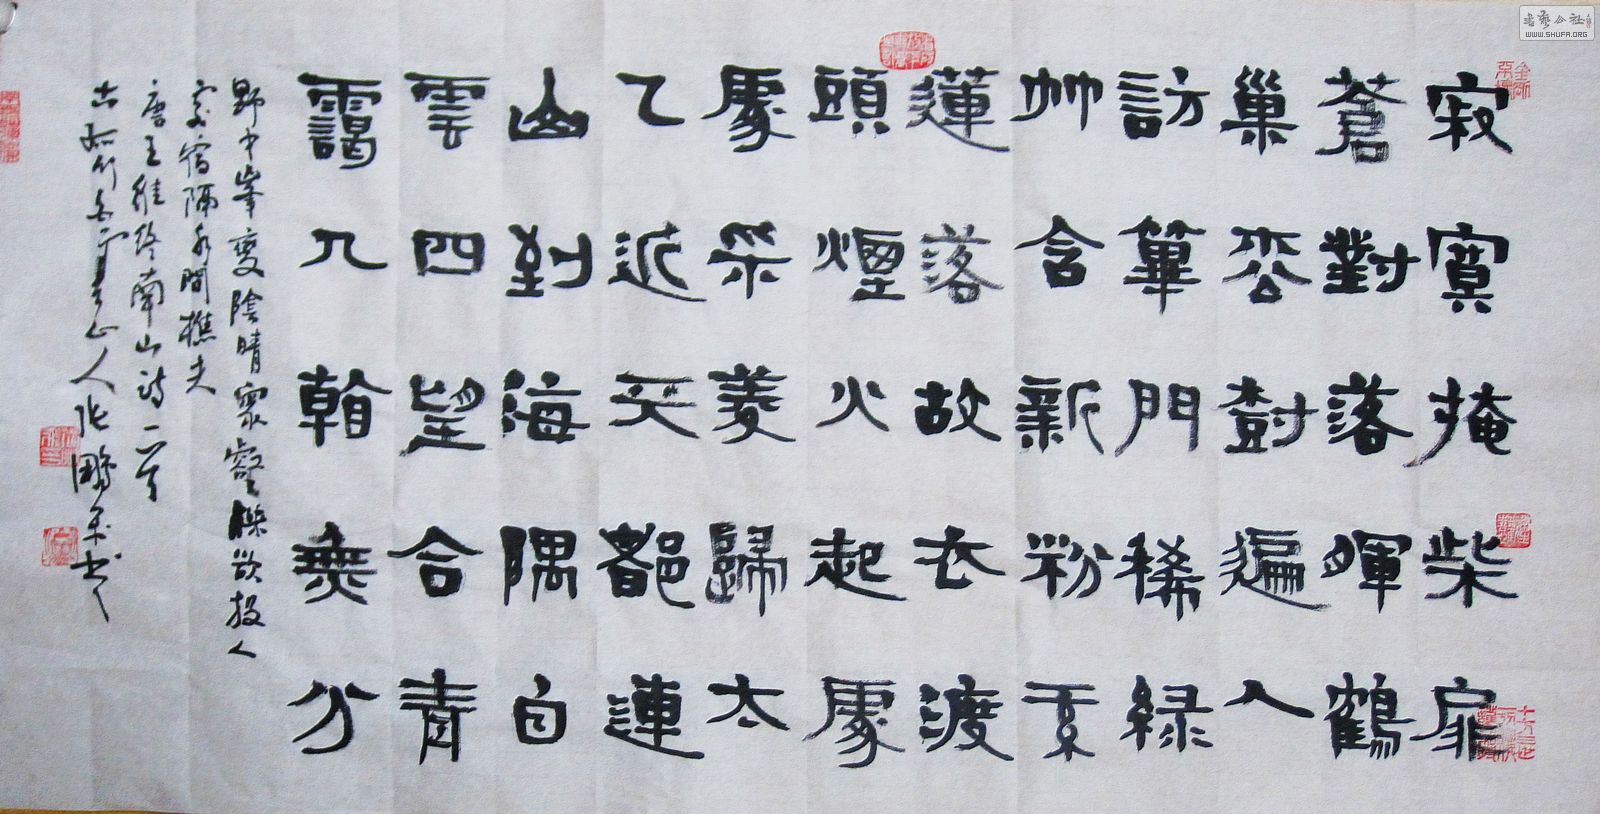 寂寞掩柴扉
蒼對落暉鶴
巢松樹遍人
訪篳門稀綠
竹含新粉紅
蓮落故衣渡
頭煙火起處
處采菱歸太
乙近天都連
山到海隅白
雲四望合青
靄入看無分
野中峯變陰晴眾壑殊欲投人
處宿隔水問樵夫
唐王維終南山詩二首
山人張鵬書
書藝公社
WWW.SHUFA.ORG